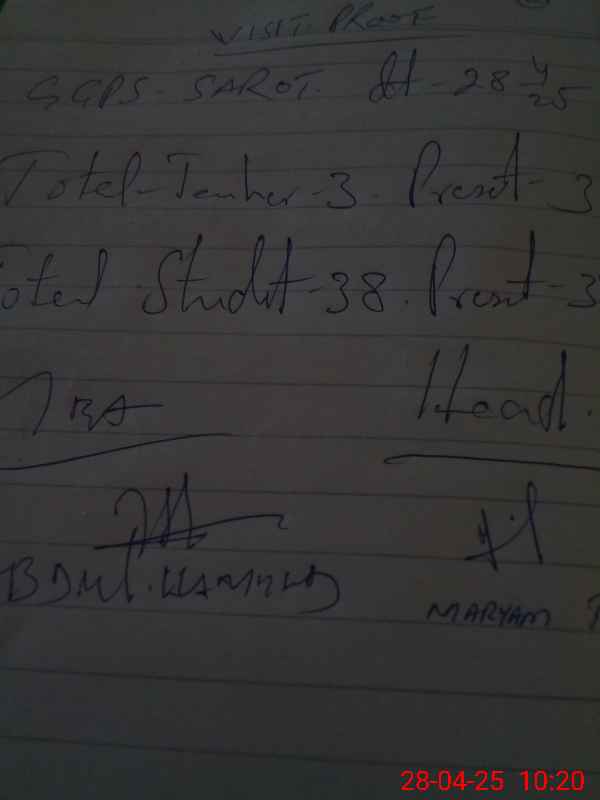 VISIT PROOF
GGPS - SAROT. dt - 28 4/25
Total - Teacher - 3. Present - 3
Total Student - 38. Present - 3
Head.
MARYAM
28-04-25 10:20